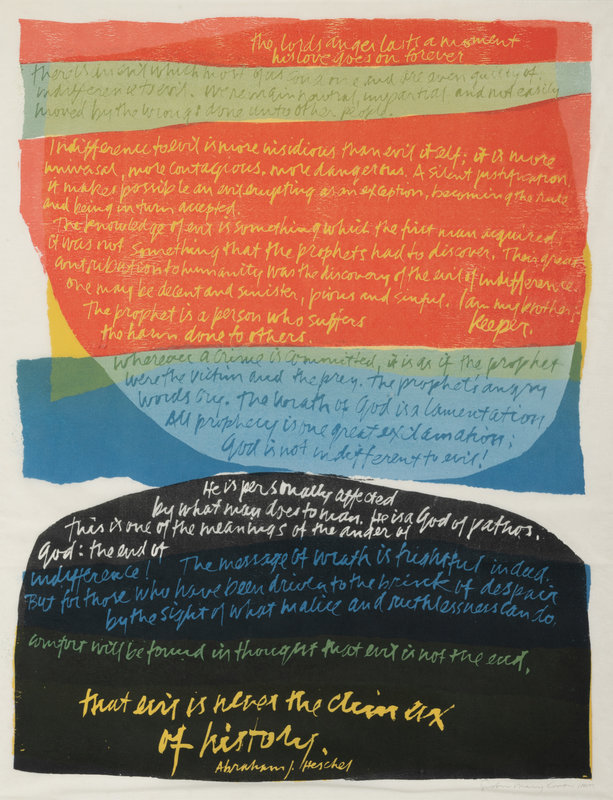 the lords anger lasts a moment
his love goes on forever
there is an evil which most of us condone and are even guilty of,
indifference to evil. We remain neutral, impartial and not easily
moved by the wrongs done unto other people.
Indifference to evil is more insidious than evil itself; it is more
universal, more contagious, more dangerous. A silent justification,
it makes possible an evil erupting as an exception, becoming the rule
and being in turn accepted.
The knowledge of evil is something which the first man acquired;
it was not something that the prophets had to discover. Their great
contribution to humanity was the discovery of the evil of indifference.
one may be decent and sinister, pious and sinful. I am my brother's
keeper.
The prophet is a person who suffers
the harm done to others.
Wherever a crime is committed, it is as if the prophet
were the victim and the prey. The prophet's angry
words cry. The wrath of God is a lamentation
All prophecy is one great exclamation;
God is not indifferent to evil!
He is personally affected
by what man does to man. He is a God of pathos.
This is one of the meanings of the anger of
God: the end of
indifference! The message of wrath is frightful indeed.
But for those who have been driven to the brink of despair
by the sight of what malice and ruthlessness can do,
comfort will be found in thought that evil is not the end,
that evil is never the climax
of history.
Abraham J. Heschel